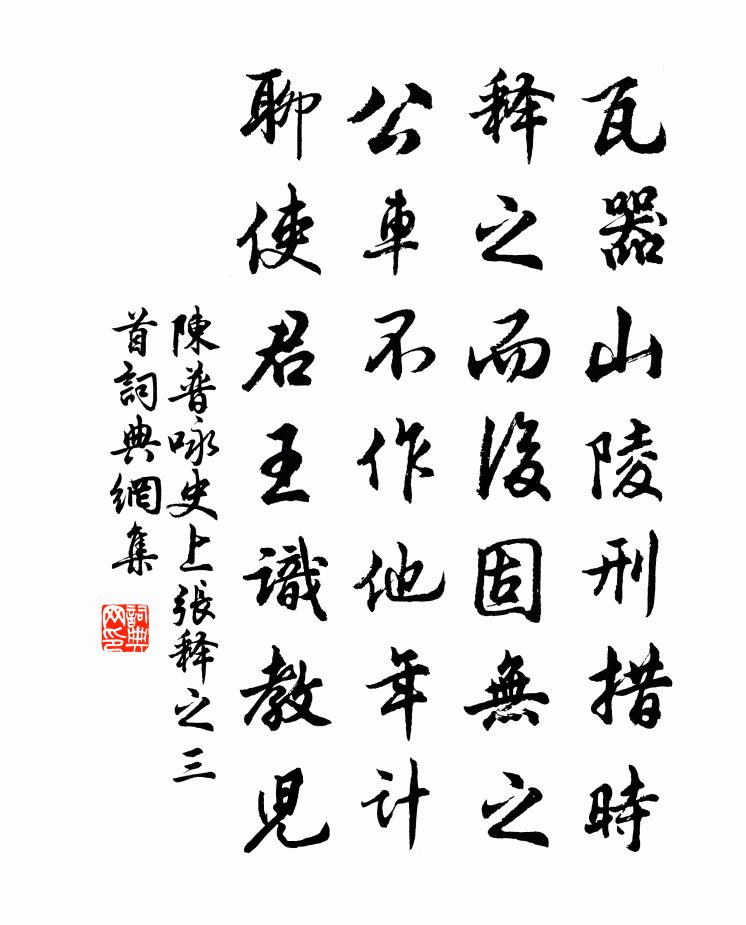 瓦器山陵刑措時
释之而後固無之
公車不作他年計
聊使君王識教児
陳普咏史上張释之三
首詞典網集
詞典網印